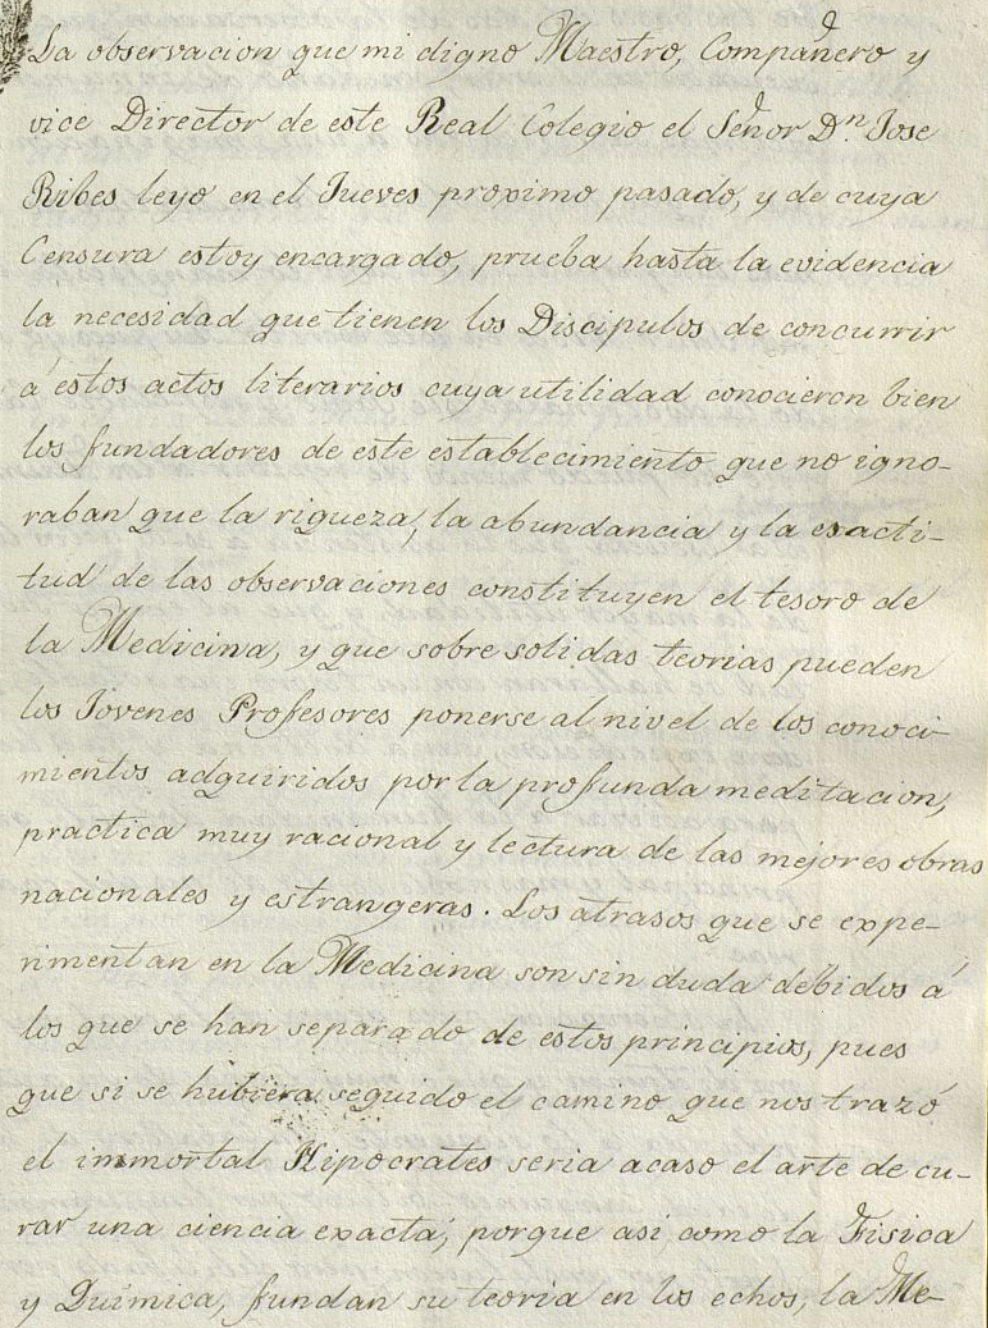 La observacion que mi digno Maestro, Compañero y
vice Director de este Real Colegio el Señor Dn. Jose
Ribes leyo en el Jueves proximo pasado, y de cuya
Censura estoy encargado, prueba hasta la evidencia
la necesidad que tienen los Discipulos de concurrir
á estos actos literarios cuya utilidad conocieron bien
los fundadores de este establecimiento que no igno-
raban que la riqueza, la abundancia y la exacti-
tud de las observaciones constituyen el tesoro de
la Medicina, y que sobre solidas teorias pueden
los Jovenes Profesores ponerse al nivel de los conoci-
mientos adquiridos por la profunda meditacion,
practica muy racional y lectura de las mejores obras
nacionales y estrangeras. Los atrasos que se expe-
rimentan en la Medicina son sin duda debidos á
los que se han separado de estos principios, pues
que si se hubiera seguido el camino que nos trazó
el immortal Hipocrates seria acaso el arte de cu-
rar una ciencia exacta, porque asi como la Fisica
y Quimica, fundan su teoria en los echos, la Me-